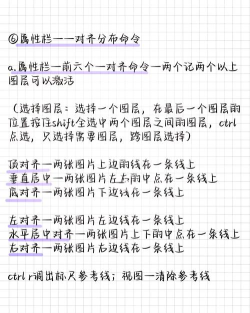 ⑥属性栏——对齐分布命令
a.属性栏—前六个—对齐命令—两个记两个以上
图层可以激活
（选择图层：选择一个图层，在最后一个图层的
位置按住shift全选中两个图层之间的图层，ctrl
点选，只选择需要图层，跨图层选择）
顶对齐—两张图片上边的线在一条线上
垂直居中—两张图片左右的中点在一条线上
底对齐—两张图片下边线在一条线上
左对齐—两张图片左边线在一条线上
水平居中对齐—两张图片上下的中点在一条线上
右对齐—两张图片右边线在一条线上
ctrl r调出标尺参考线；视图—清除参考线